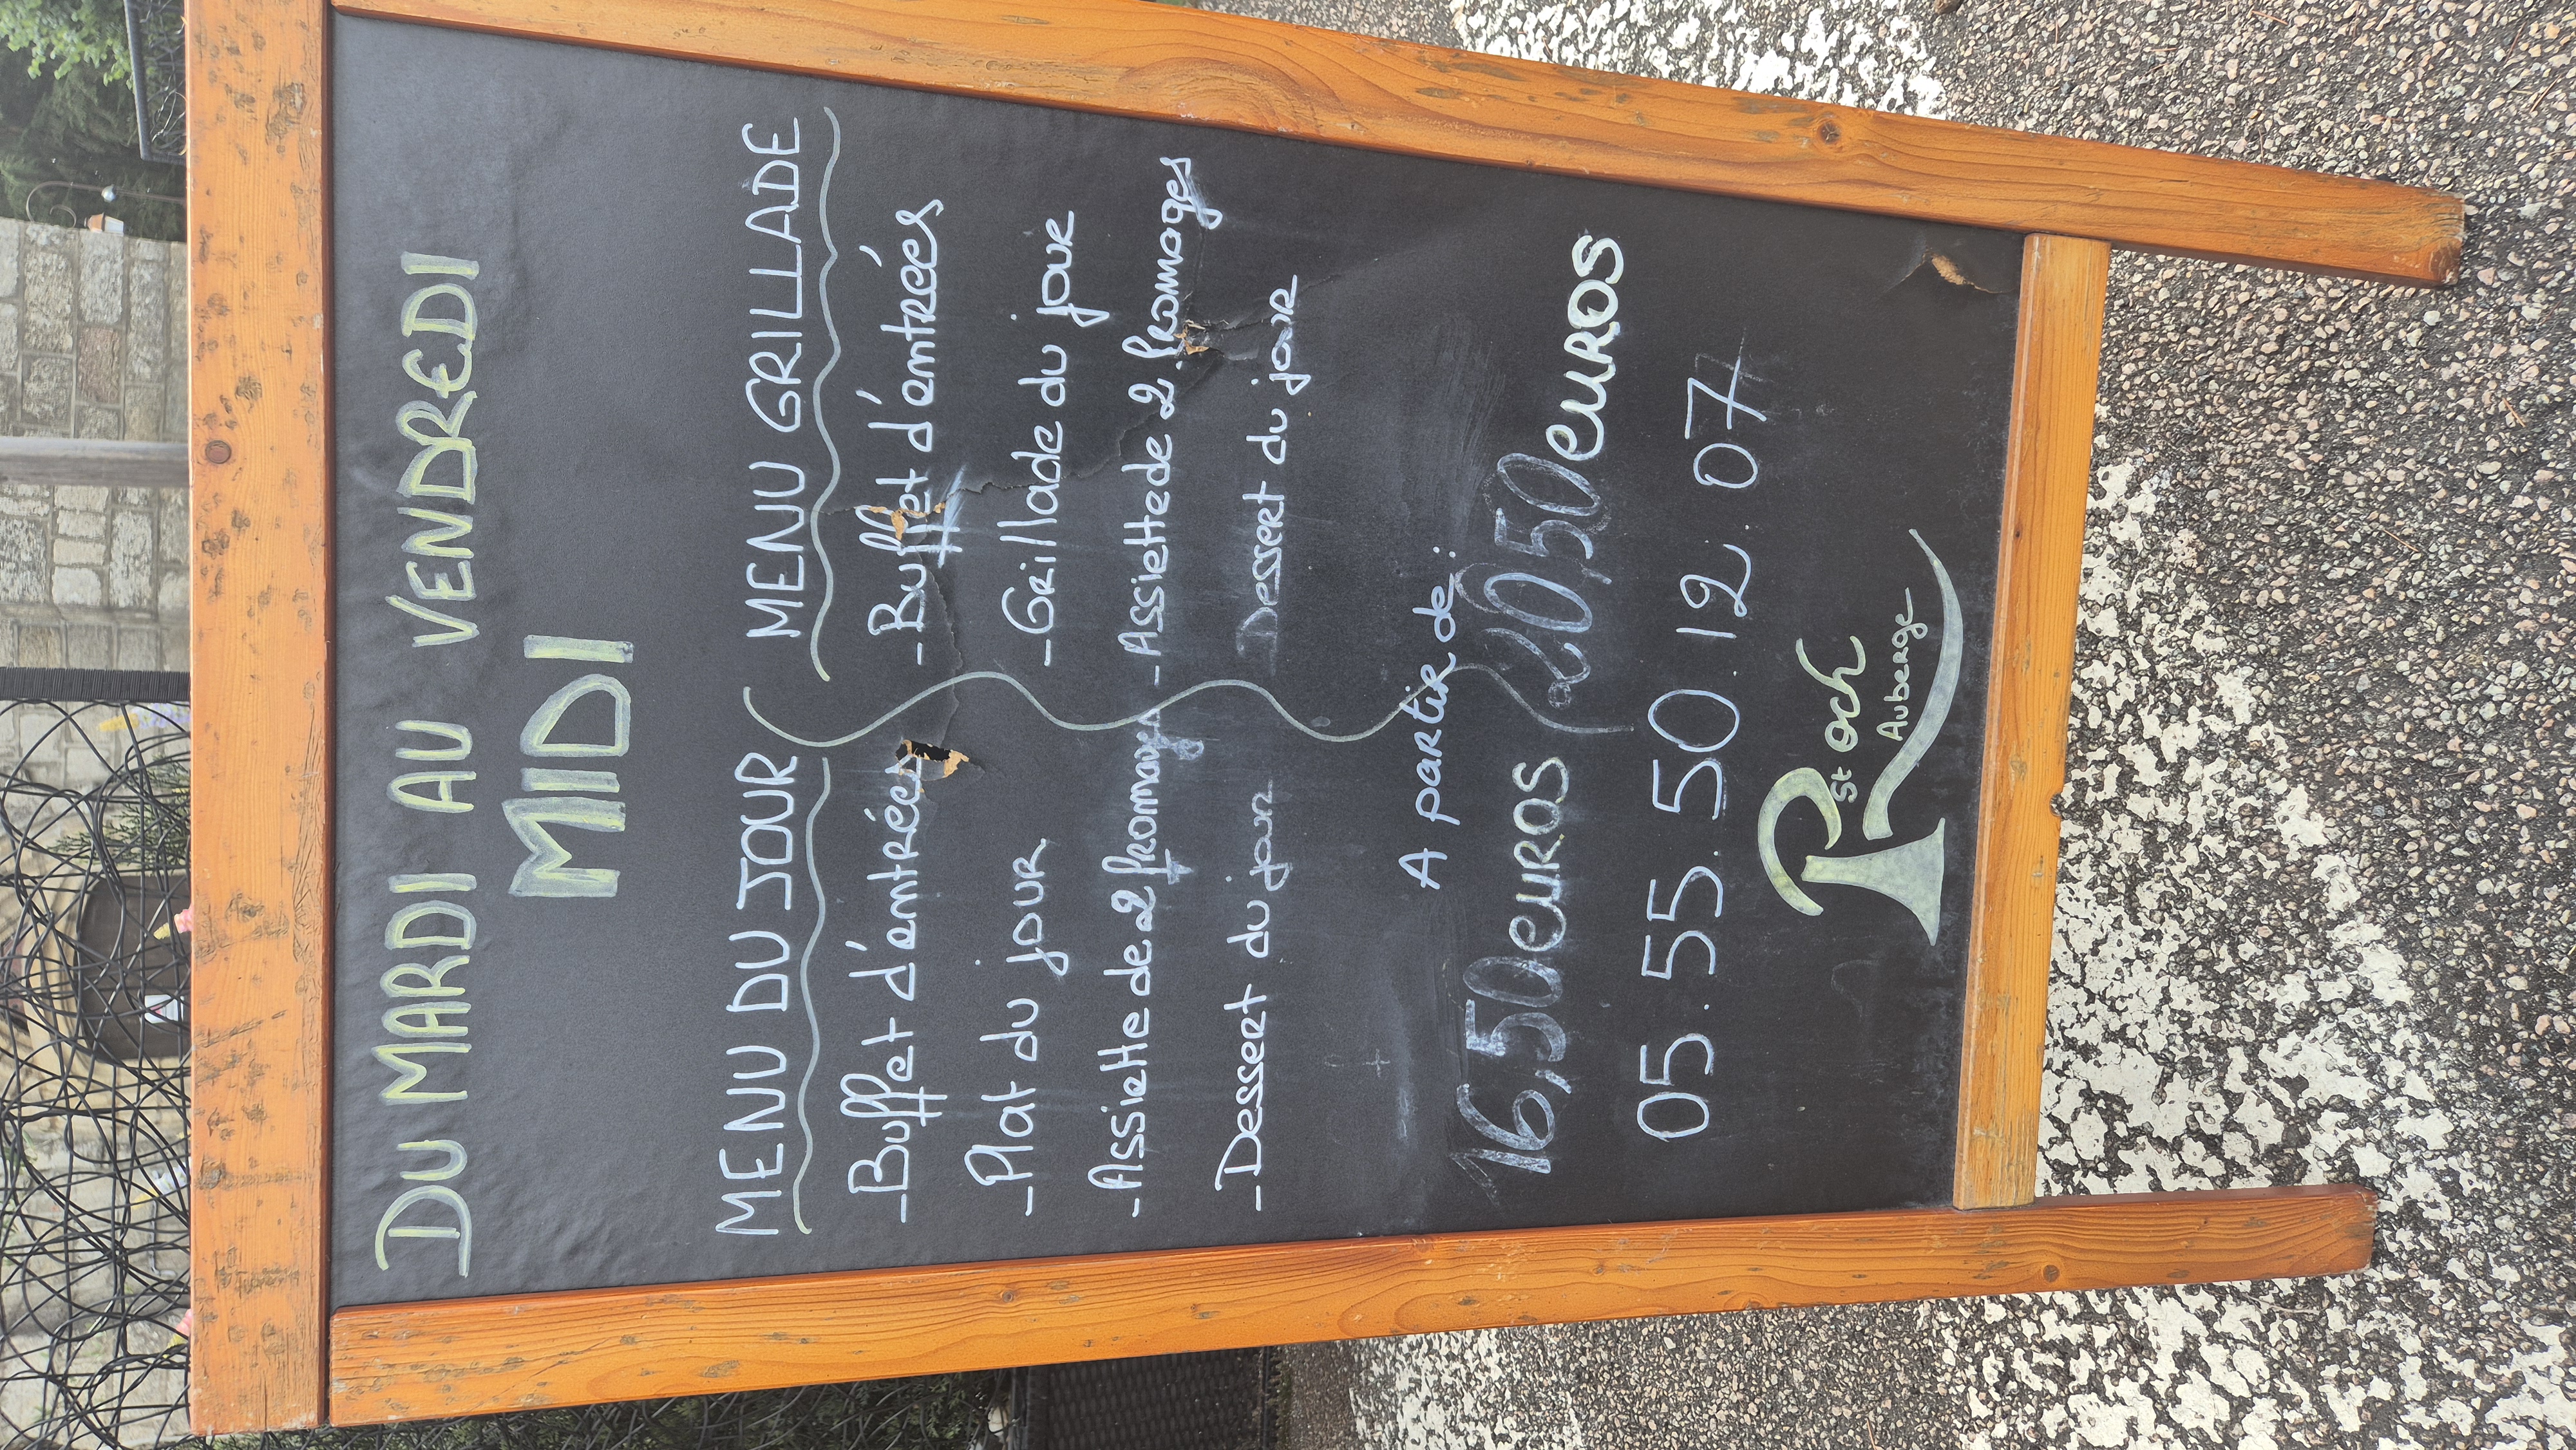 DU MARDI AU VENDREDI
MIDI
MENU DU JOUR
-Buffet d'entrées
-Plat du jour
-Assiette de 2 fromages
-Dessert du jour
MENU GRILLADE
-Buffet d'entrées
-Grillade du jour
-Assiette de 2 fromages
Dessert du jour
A partir de:
16,50 euros
20,50 euros
05.55.50.12.07
R St och
Auberge